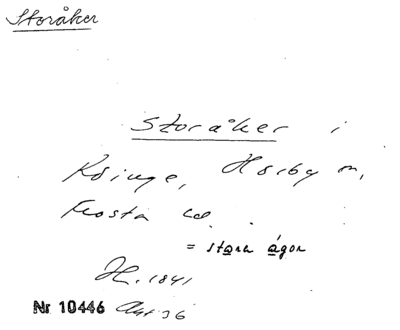 Storåker
Storåker i
Köinge, Hörby sn,
Frosta hd.
= stora ågor
H. 1841
Nr 10446